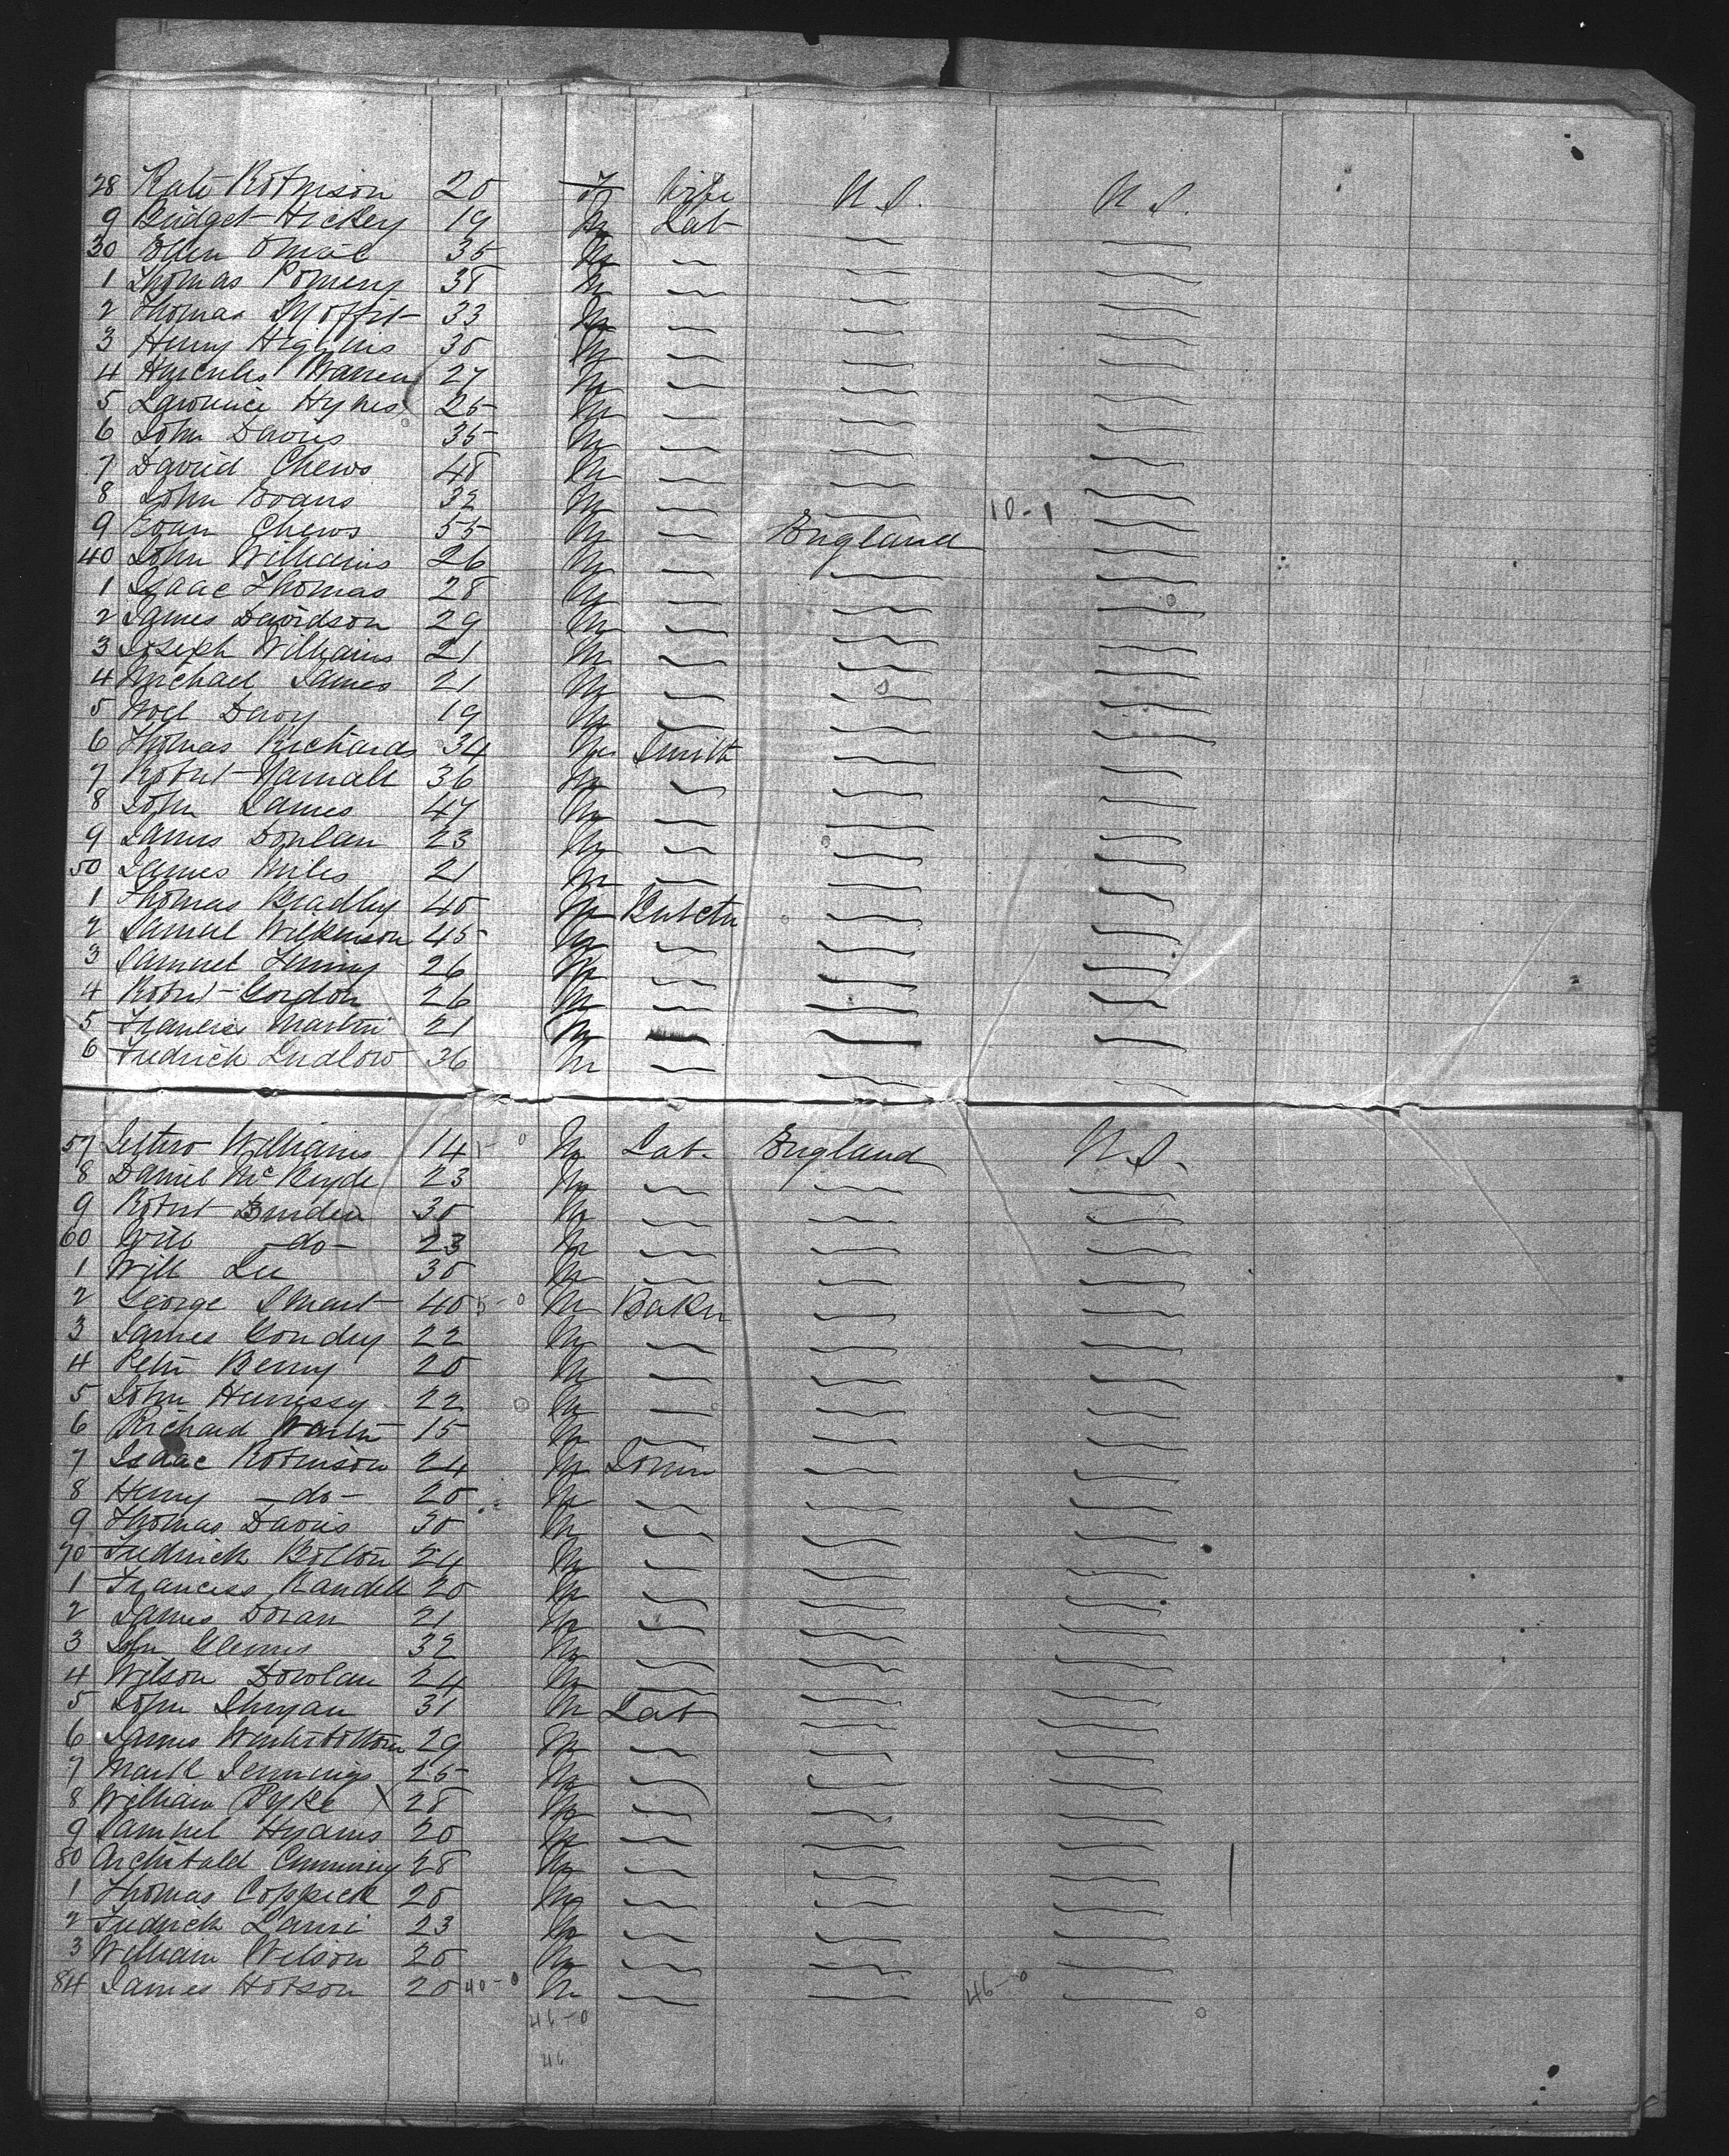 28 Kate Robinson 20 F Wife U. S. U. S.
9 Bridget Hickey 19 Lab
30 Ellen 35
1 Thomas Pomeny 38 M
2 Thomas Moffit 33 M
3 Henry Higgins 30 M
4 Hercules Warren 27 M
5 Lawrence Hykes 25 M
6 John Davis 35 M
7 David Chews 48 M
8 John Evans 32 M
9 Evan Chews 55 M England 10-1
40 John Williams 26 M
1 Isaac Thomas 28 M
2 James Davidson 29 M
3 Joseph Williams 21 M
4 Michael James 21 M
5 Noel Davy 19 M
6 Thomas Richards 34 M Smith
7 Robert 36 M
8 John James 47 M
9 James Donlan 23 M
50 James Miles 21 M
1 Thomas Bradley 40 M Butcher
2 Samuel Wilkinson 45 M
3 Samuel 26 M
4 Robert Gordon 26 M
5 Francis Martin 21 M
6 Fredrick Ludlow 36 M
57 Jethro Williams 14 1-0 M Lab. England U. S.
8 Daniel 23 M
9 Robert Burden 30 M
60 Will -do- 23 M
1 Will Lee 30 M
2 George Smart 40 5-0 M Baker
3 James Gondey 22 M
4 Peter Berry 20 M
5 John Hennessy 22 M
6 Richard 15 M
7 Isaac Robinson 24 M Joiner
8 Henry -do- 20 M
9 Thomas Davis 30 M
70 Fredrick Bolton 24 M
1 Francess Randell 20 M
2 James Doran 21 M
3 John Glennis 32 M
4 Wilson Dowlan 24 M
5 John 31 M Lab
6 James Winterbottom 29 M
7 Mark Jennings 25 M
8 William Pyke X 28 M
9 Samuel Hyams 20 M
80 Archibald Cumming 28 M
1 Thomas Coppick 20 M
2 Fredrick 23 M
3 William Wilson 20 M
84 James Hobson 20 40-0 M 46-0
46-0
46